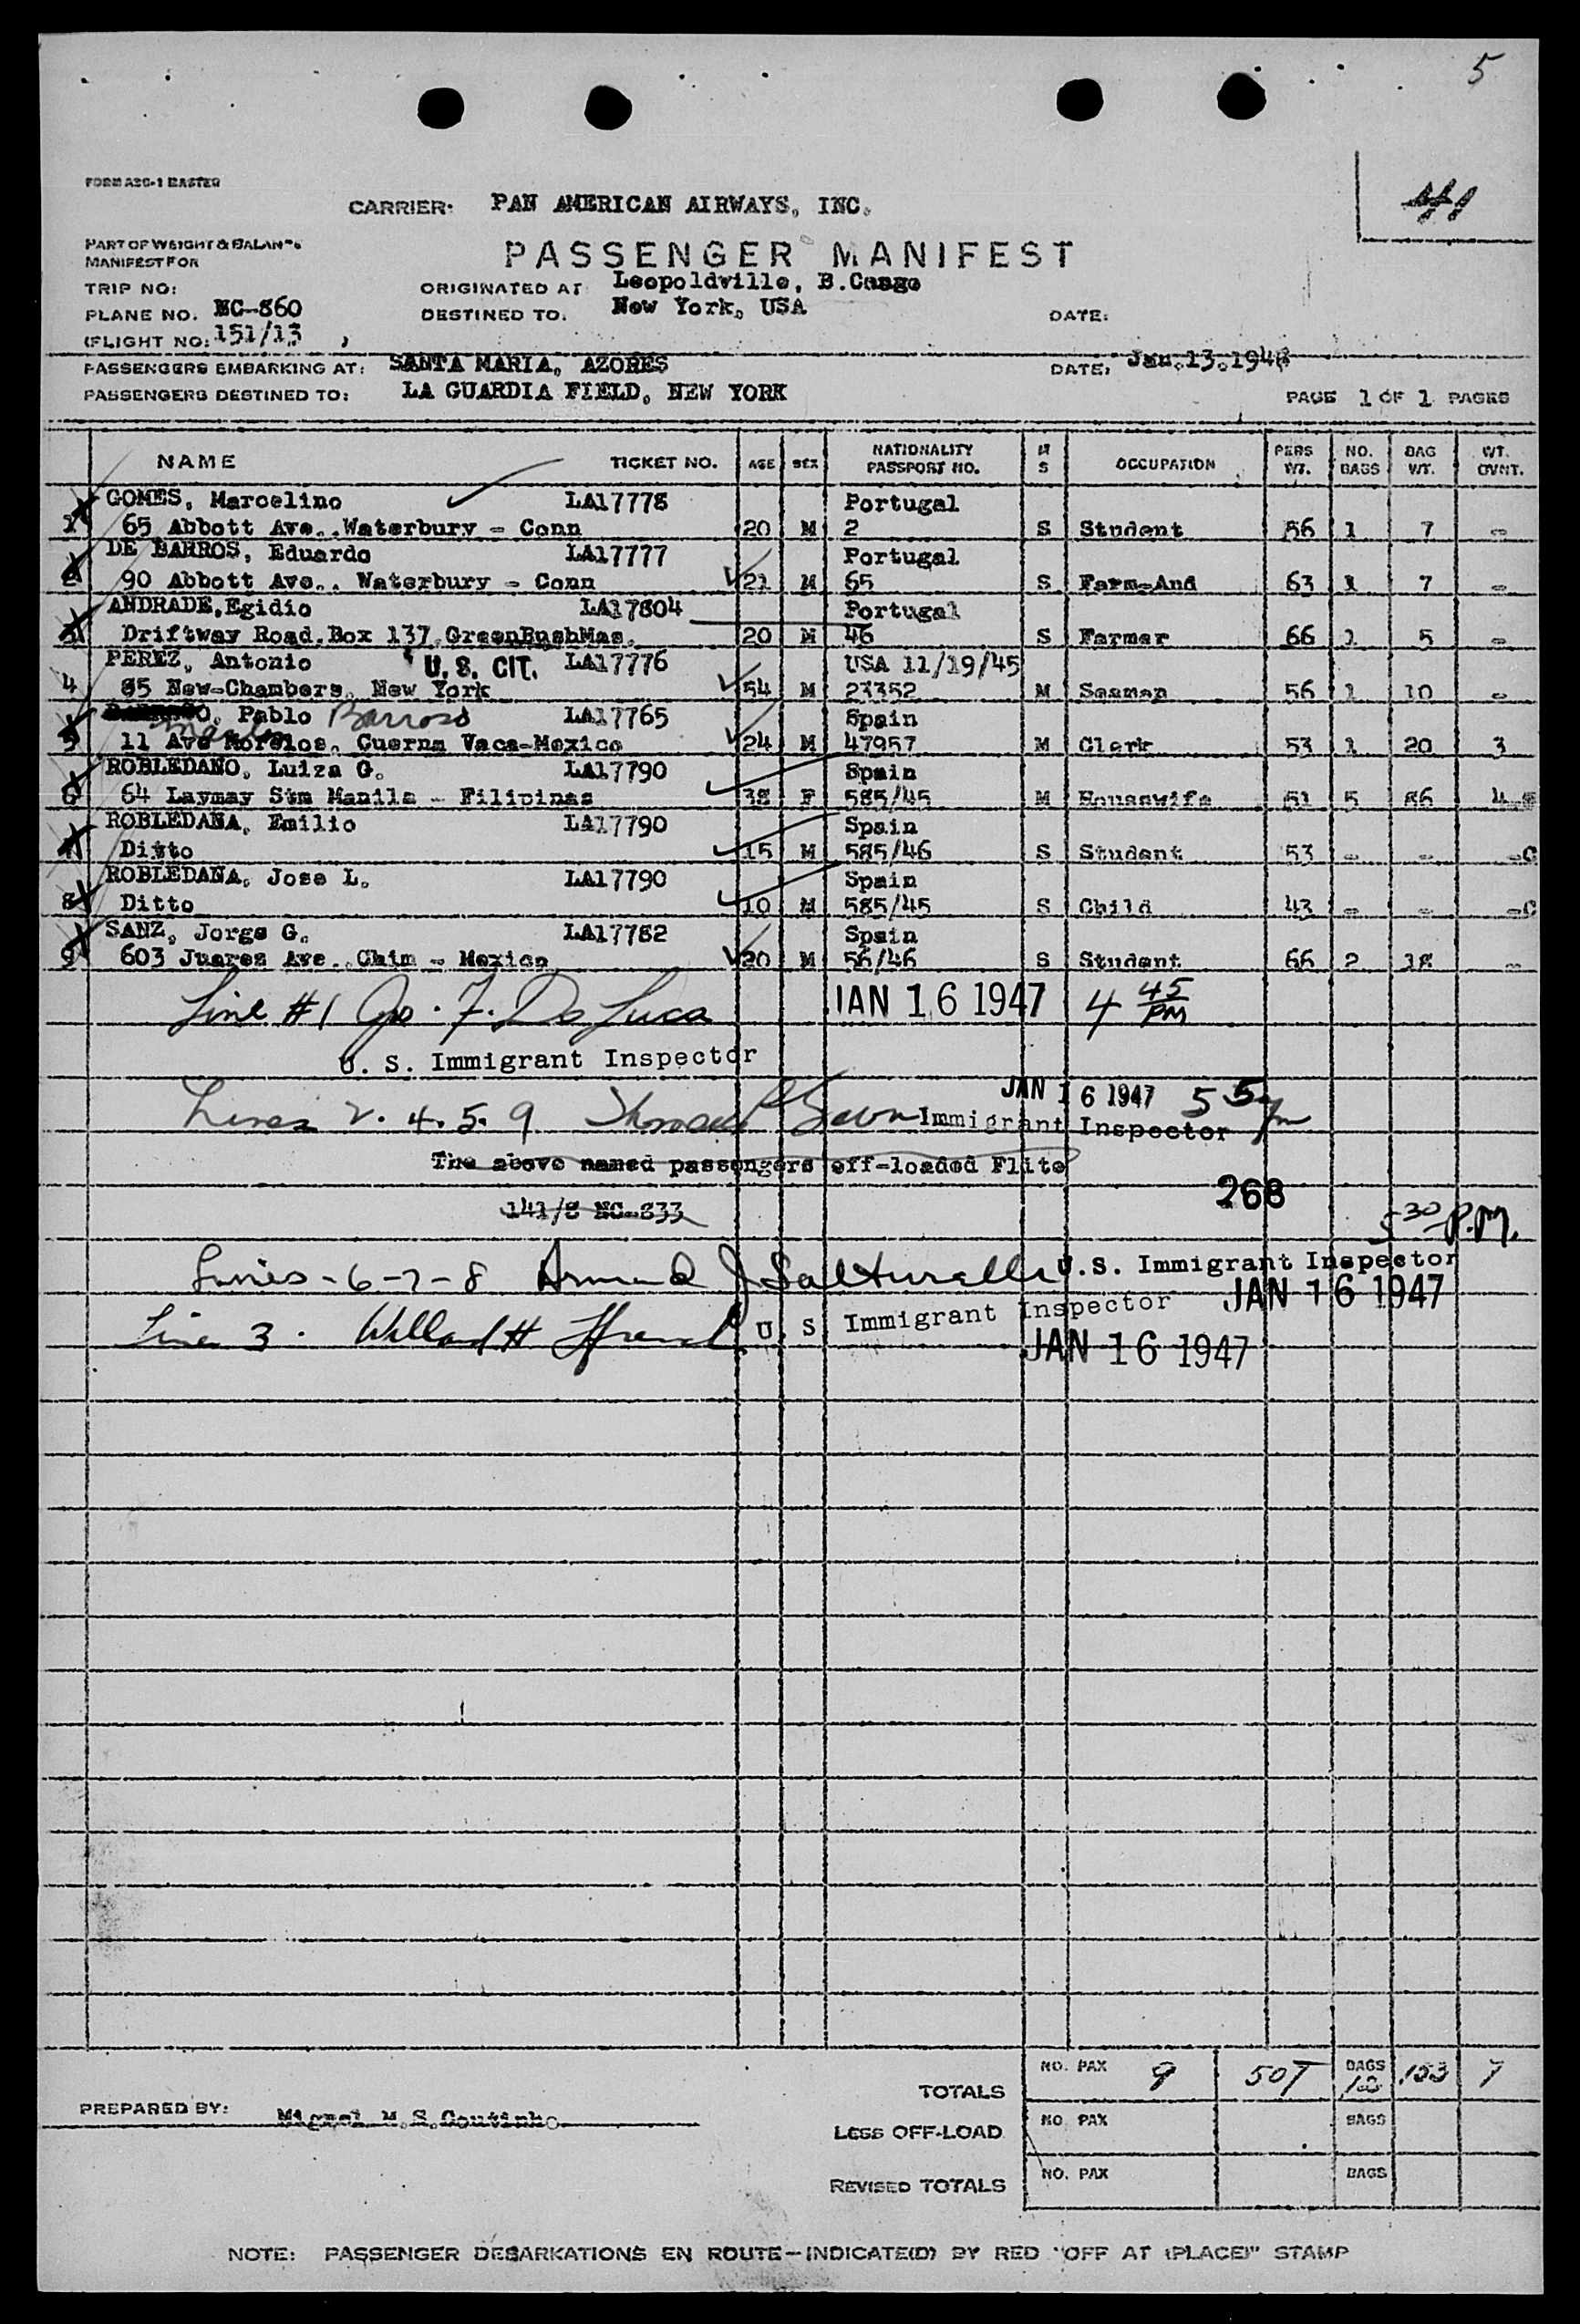 5
FORM ASC-1 MASTER
41
CARRIER: PAN AMERICAN AIRWAYS, INC.
PART OF WEIGHT & BALANCE
MANIFEST FOR
PASSENGER MANIFEST
TRIP NO:
ORIGINATED AT Leopoldville, B.Congo
PLANE NO. NC-860
DESTINED TO. New York, USA
DATE:
(FLIGHT NO: 151/13 )
PASSENGERS EMBARKING AT: SANTA MARIA, AZORES
DATE: Jan.13.194
PASSENGERS DESTINED TO: LA GUARDIA FIELD, NEW YORK
PAGE 1 OF 1 PAGES
NAME TICKET NO. AGE SEX NATIONALITY PASSPORT NO. M S OCCUPATION PERS WT. NO. BAGS BAG WT. WT. OVNT.
GOMES, Marcelino LA17778 Portugal
1 65 Abbott Ave., Waterbury - Conn 20 M 2 S Student 56 1 7 -
DE BARROS, Eduardo LA17777 Portugal
2 90 Abbott Ave., Waterbury - Conn 21 M 65 S Farm-And 63 1 7 -
ANDRADE,Egidio LA17804 Portugal
3 Driftway Road.Box 137,GreenBushMas. 20 M 46 S Farmer 66 1 5 -
PEREZ, Antonio U.S. CIT. LA17776 USA 11/19/45
4 85 New-Chambers, New York 54 M 23352 M Seaman 56 1 10 -
O, Pablo Barroso LA17765 Spain
5 11 Ave Morelos, Cuerna Vaca-Mexico 24 M 47957 M Clerk 53 1 20 3
ROBLEDANO, Luiza G. LA17790 Spain
6 64 Laymay Stm Manila - Filipinas 38 F 585/45 M Housewife 51 5 86 4
ROBLEDANA, Emilio LA17790 Spain
7 Ditto 15 M 585/46 S Student 53 - - -C
ROBLEDANA, Jose L. LA17790 Spain
8 Ditto 10 M 585/45 S Child 43 - - -C
SANZ, Jorge G. LA17782 Spain
9 603 Juares Ave., Chim - Mexico 20 M 56/46 S Student 66 2 18 -
Line #1 Jos. F. De Luca JAN 16 1947 4 45 PM
U. S. Immigrant Inspector
JAN 16 1947 5 5 pm
Lines 2. 4. 5. 9 Thomas Immigrant Inspector
The above named passengers off-loaded Flite
141/8 NC-833
268
5 30 P.M.
Lines - 6-7-8 Armand J U.S. Immigrant Inspector
JAN 16 1947
Line 3. Willard H U S Immigrant Inspector
JAN 16 1947
TOTALS NO. PAX 9 507 BAGS 12 153 7
PREPARED BY: Miguel M.S.Coutinho
LESS OFF-LOAD NO. PAX BAGS
REVISED TOTALS NO. PAX BAGS
NOTE: PASSENGER DEBARKATIONS EN ROUTE—INDICATE(D) BY RED "OFF AT (PLACE)" STAMP